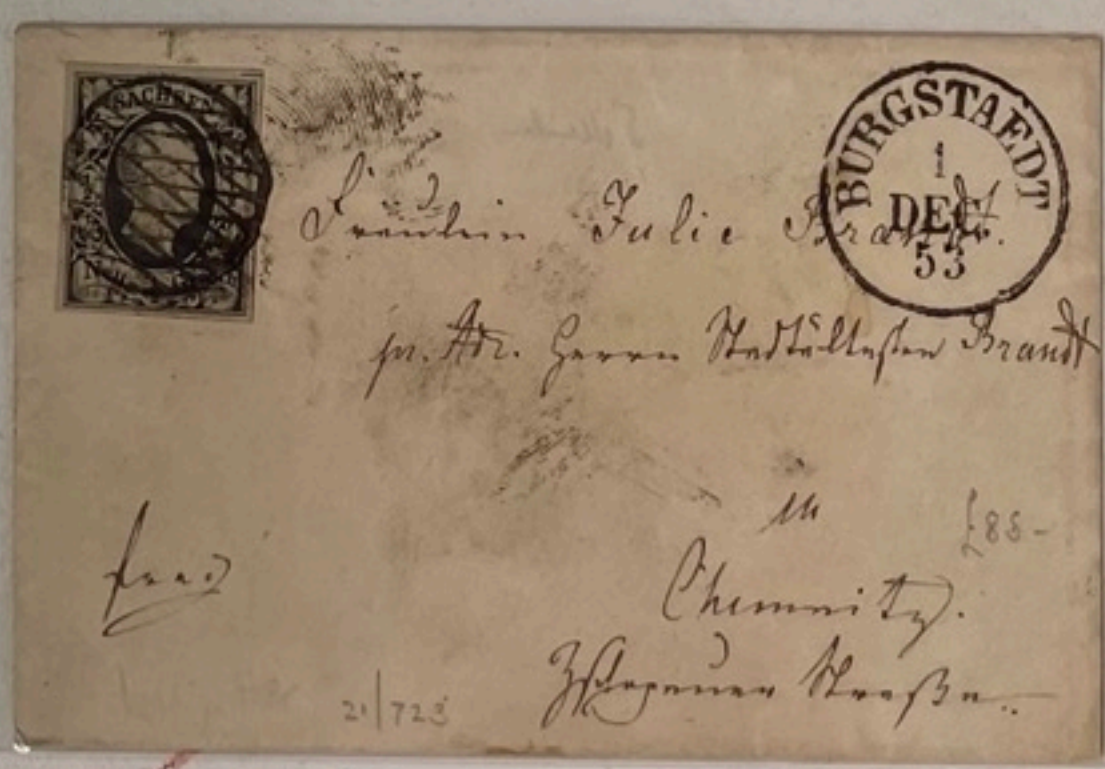 SACHSEN
BURGSTAEDT
1
DEC
53
Fräulein Julie Brandt.
pr. Adr. Herrn Stadtältesten Brandt
in
£85-
franco
Chemnitz.
Zschopauer Straße.
21/723